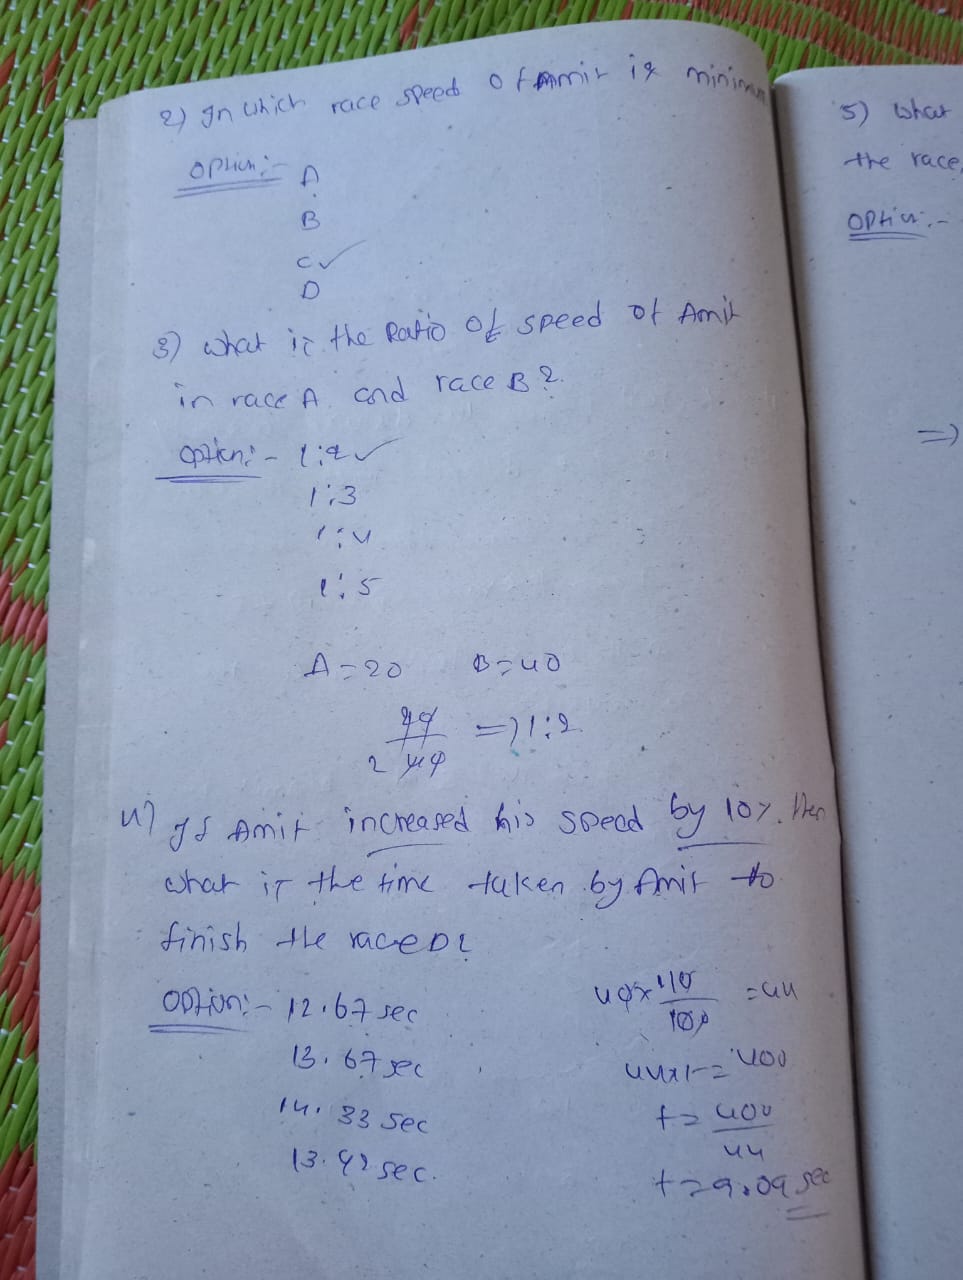 2) In which race speed of Amit is minimum
option:-
A
B
C ✓
D
3) what is the Ratio of speed of Amit
in race A and race B?
option:- 1:2 ✓
1:3
1:4
1:5
A=20 B=40
20/40 2 => 1:2
4) If Amit increased his speed by 10%. then
what is the time taken by Amit to
finish the race D?
Option:- 12.67 sec
13.67 sec
14.33 sec
13.92 sec.
40x110/100 = 44
44xt=400
t=400/44
t=9.09 sec
5) what
the race,
option:-
=>